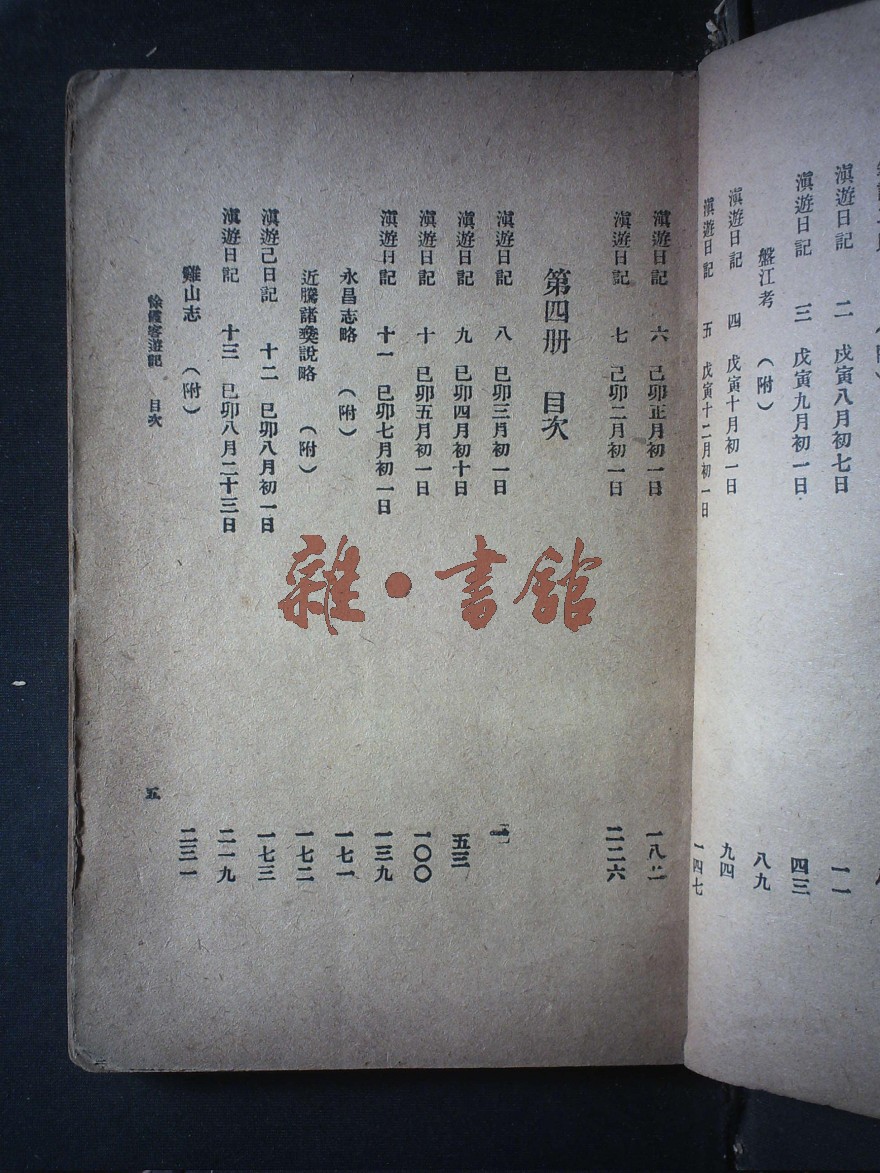 滇遊日記 二 戊寅八月初七日 一一
滇遊日記 三 戊寅九月初一日 四三
盤江考 (附) 八九
滇遊日記 四 戊寅十月初一日 九四
滇遊日記 五 戊寅十二月初一日 一四七
滇遊日記 六 己卯正月初一日 一八二
滇遊日記 七 己卯二月初一日 二二六
第四册 目次
滇遊日記 八 巳卯三月初一日 一
滇遊日記 九 巳卯四月初十日 五三
滇遊日記 十 巳卯五月初一日 一〇〇
滇遊日記 十一 巳卯七月初一日 一三九
永昌志略 (附) 一七一
近騰諸彝說略 (附) 一七二
滇遊己日記 十二 巳卯八月初一日 一七三
滇遊日記 十三 巳卯八月二十三日 二一九
雞山志 (附) 二三一
徐霞客遊記 目次 五
雜·書館